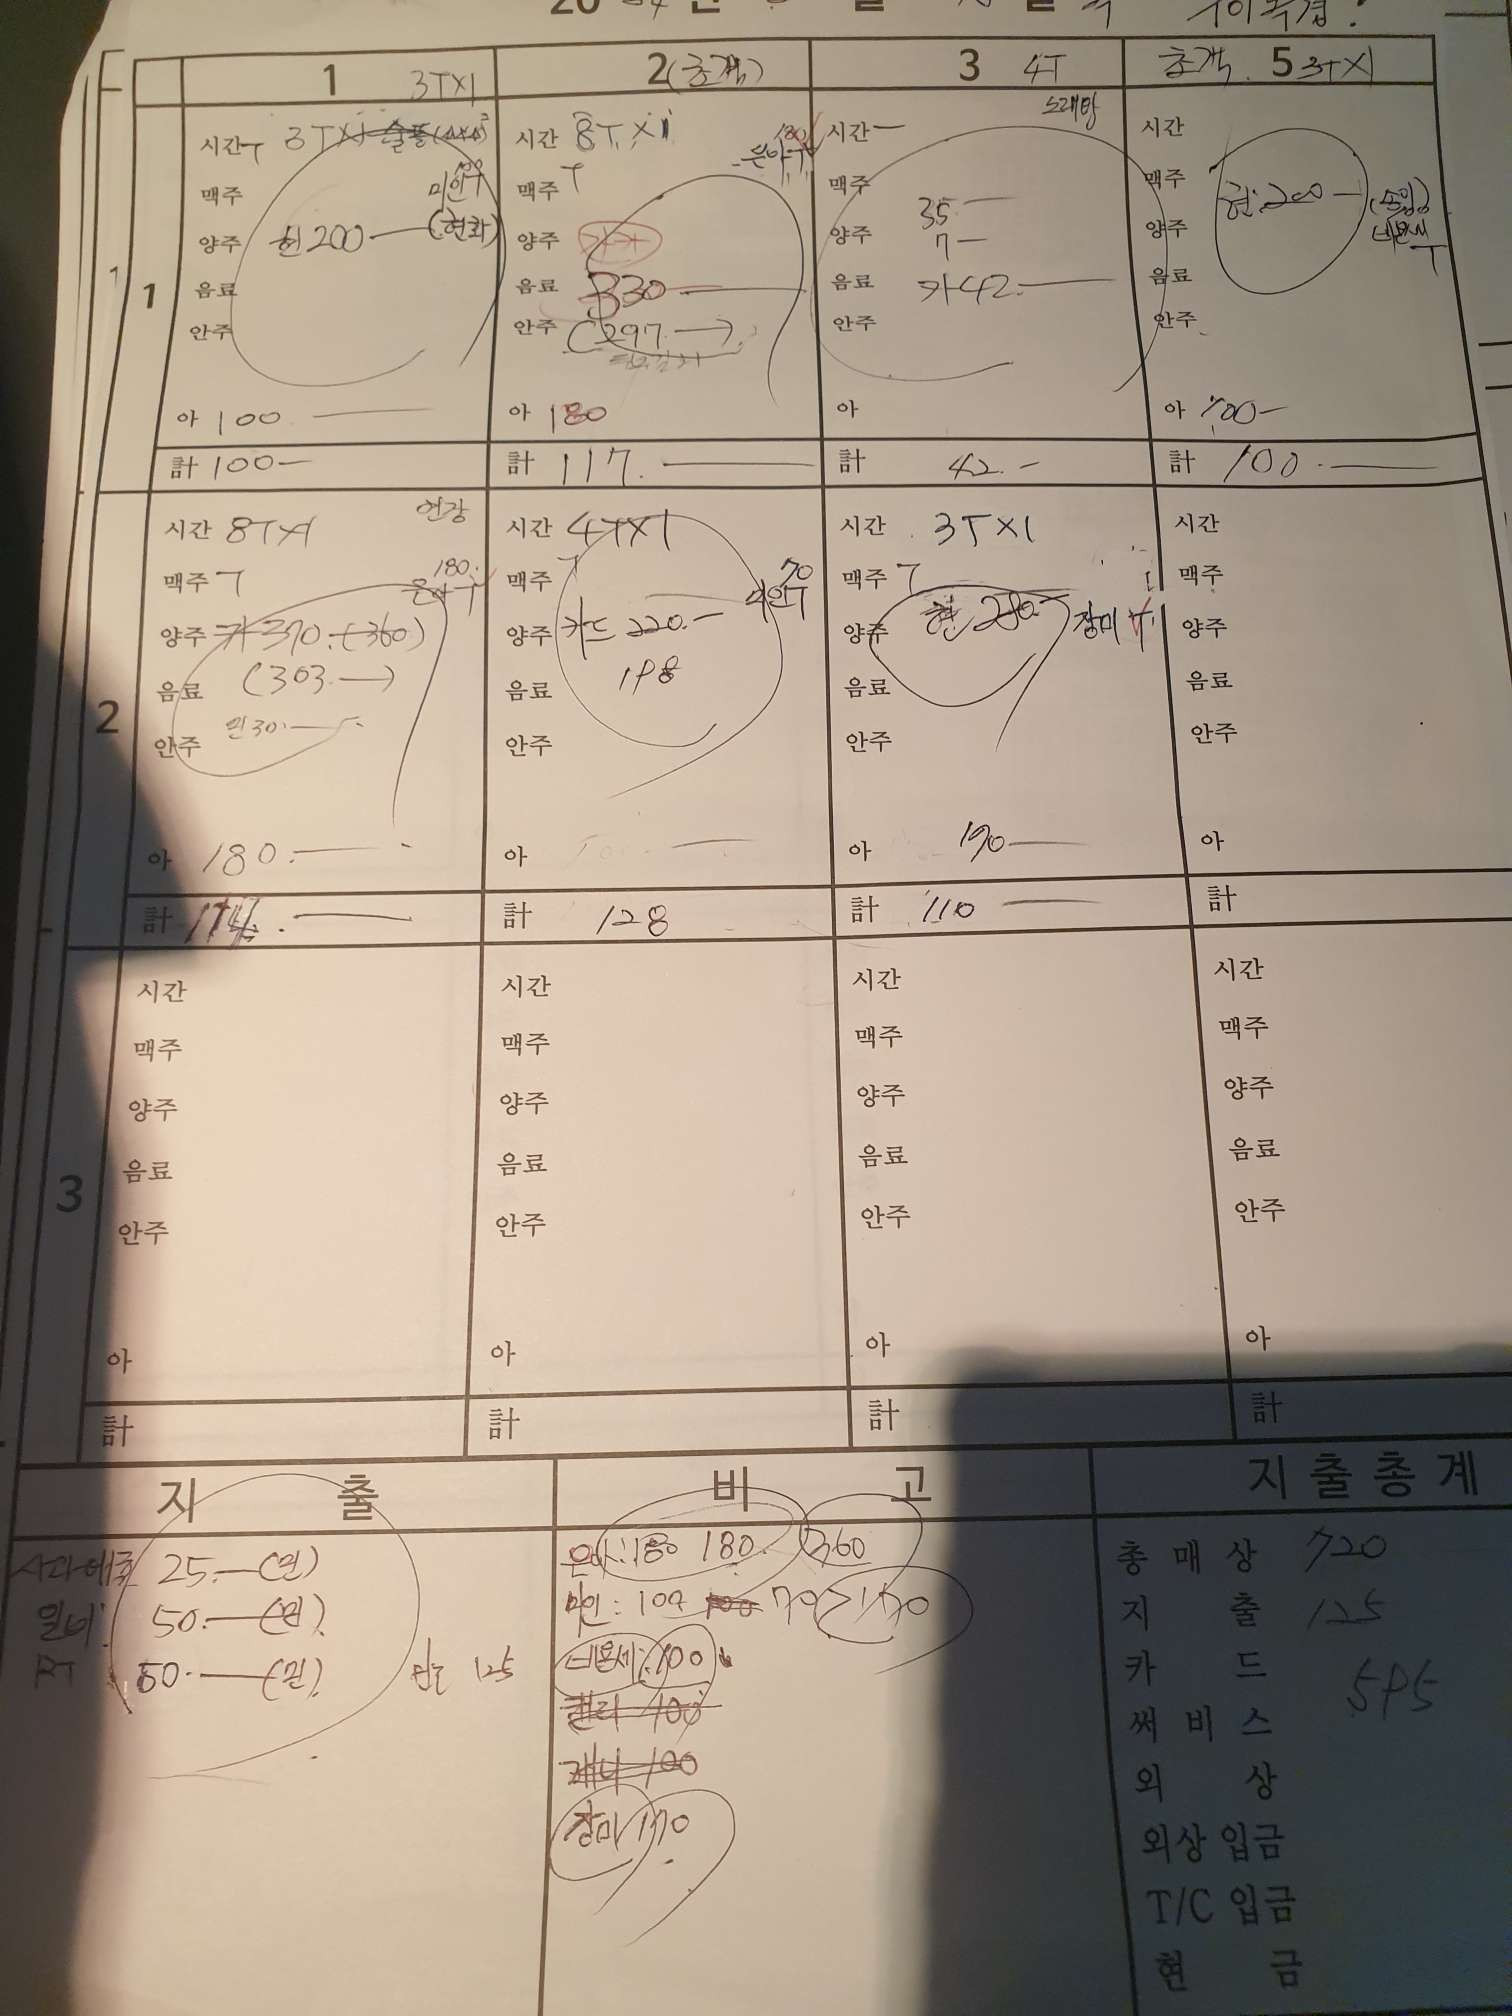 1 3TX1
2(초객)
3 4T
초객. 5 3TX1
1
시간 3TX1
미인
맥주
양주 현200 (현화)
음료
안주
아 100
計 100
시간 8TX1
180
맥주
양주
음료 330
안주 (297)
아 180
計 117
노래방
시간
맥주
35
양주
7
음료 카42
안주
아
計 42
시간
맥주 현:200
양주
음료
안주
아 100
計 100
2
연장
시간 8TX1
180
맥주
양주 카370 (360)
음료 (303)
안주 민30
아 180
計 174
시간 4TX1
70
맥주 미인
양주 카드 220
음료 198
안주
아
計 128
시간 3TX1
맥주
양주 현 280 장미
음료
안주
아 170
計 110
시간
맥주
양주
음료
안주
아
計
3
시간
맥주
양주
음료
안주
아
計
시간
맥주
양주
음료
안주
아
計
시간
맥주
양주
음료
안주
아
計
시간
맥주
양주
음료
안주
아
計
지 출
25 (민)
50 (민)
50 (민) 민 125
비 고
은아: 180 180 360
미인: 100 70 170
100
100
제니 100
장미 170
지출총계
총매상 720
지출 125
카드 595
써비스
외상
외상입금
T/C 입금
현금